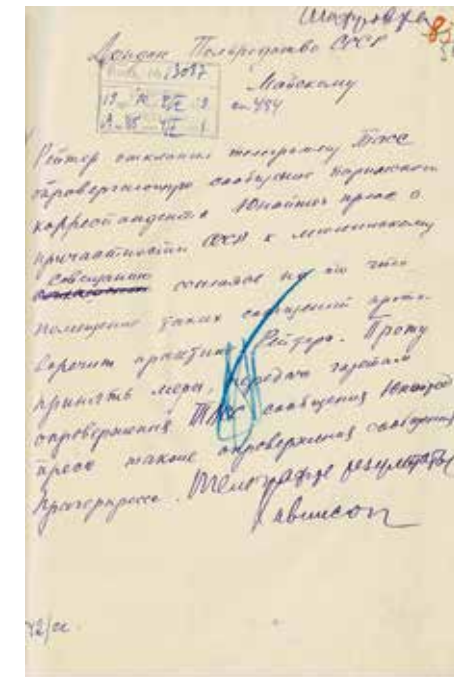 Шифровка
Лондон Полпредство СССР
13087
Майскому
Рейтер отклонил телеграмму Тасс
опровергающую сообщение парижского
корреспондента Юнайтед пресс о
причастности СССР к мюнхенскому
совещанию ссылаясь на то что
помещение таких сообщений проти-
воречит практике Рейтера. Прошу
принять меры передачи газетам
опровержения ТАСС сообщения Юнайтед
пресс также опровержения сообщения
Прагерпрессе. Телеграфьте результаты